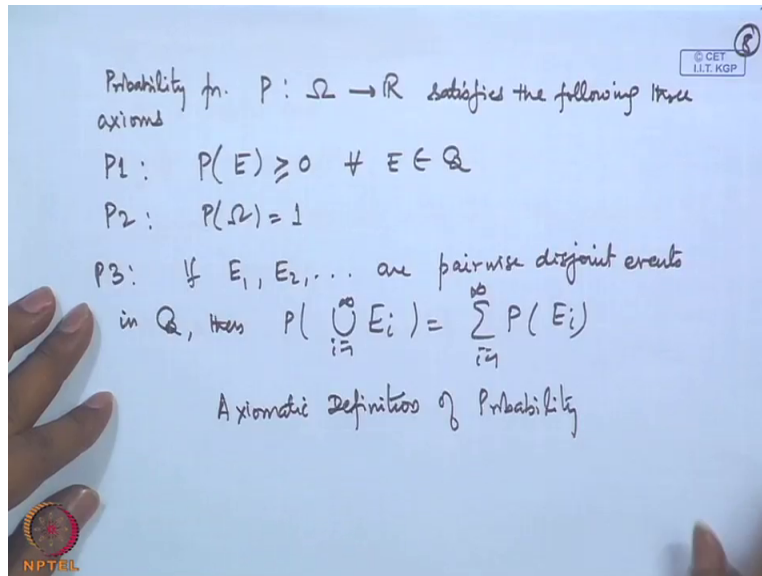 8
© CET
I.I.T. KGP
Probability fn. P : Ω → R satisfies the following three
axioms
P1 : P(E) ≥ 0 ∀ E ∈ Q
P2 : P(Ω) = 1
P3 : If E₁, E₂, ... are pairwise disjoint events
in Q, then P( ∞⋃i=1 Eᵢ ) = ∞∑i=1 P(Eᵢ)
Axiomatic Definition of Probability
NPTEL